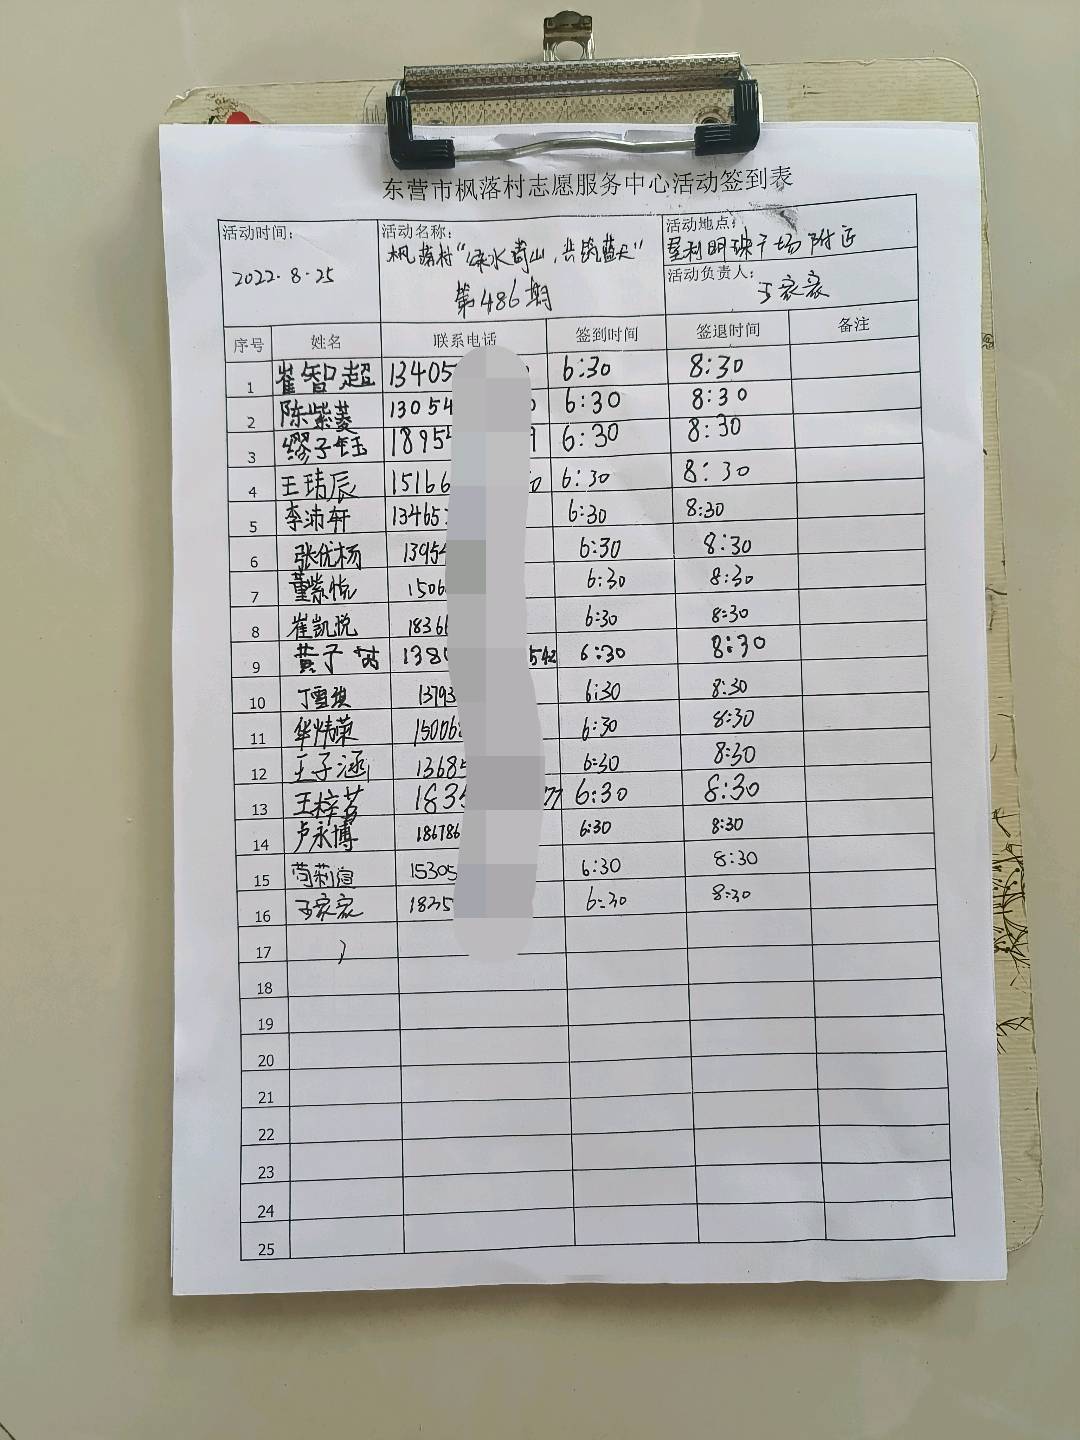 东营市枫落村志愿服务中心活动签到表
活动时间: 活动名称: 活动地点:
2022.8.25 枫落村“绿水青山,共筑蓝天” 垦利明珠广场附近
第486期 活动负责人:
王家家
序号 姓名 联系电话 签到时间 签退时间 备注
1 崔智超 13405 6:30 8:30
2 陈紫菱 13054 6:30 8:30
3 缪子钰 1895 9 6:30 8:30
4 王玮辰 15166 0 6:30 8:30
5 李沛轩 13465 6:30 8:30
6 张优杨 1395 6:30 8:30
7 董紫悦 1506 6:30 8:30
8 崔凯悦 1836 6:30 8:30
9 黄子 138 542 6:30 8:30
10 丁雪琪 13793 6:30 8:30
11 华炜荣 15006 6:30 8:30
12 王子涵 13685 6:30 8:30
13 王梓茗 183 77 6:30 8:30
14 卢永博 186786 6:30 8:30
15 15305 6:30 8:30
16 王家家 1835 6:30 8:30
17
18
19
20
21
22
23
24
25